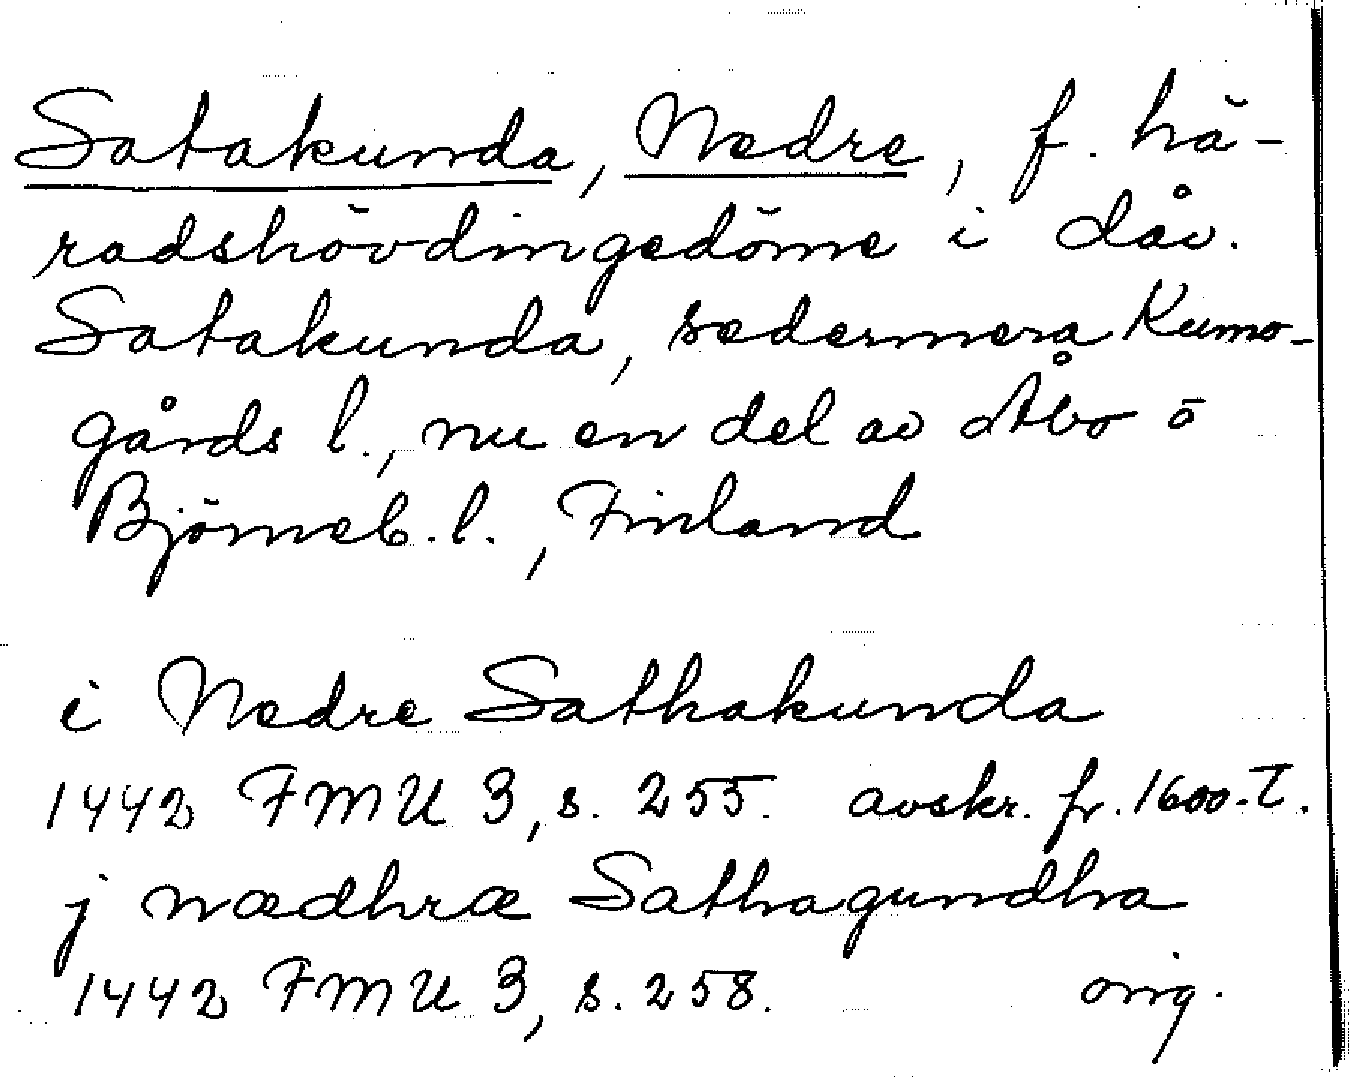 Satakunda, Nedre, f. hä-
radshövdingedöme i dåv.
Satakunda, sedermera Kumo-
gårds l., nu en del av Åbo o
Björneb. l., Finland
i Nedre Sathakunda
1442 FMU 3, s. 255. avskr. fr. 1600-t.
j nædhræ Sathagundha
1442 FMU 3, s. 258. orig.